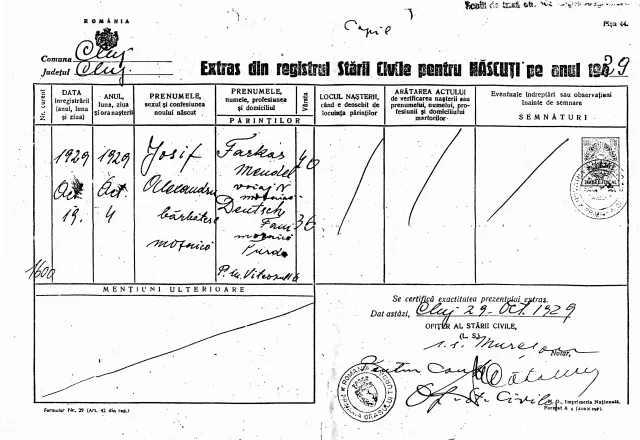 ROMÂNIA
Copie
Fița 44.
Comuna Cluj
Județul Cluj
Extras din registrul Stării Civile pentru NĂSCUȚI pe anul 1929
Nr. curent
DATA
înregistrării
(anul, luna
și ziua)
ANUL,
luna, ziua
și ora nașterii
PRENUMELE,
sexul și confesiunea
noului născut
PRENUMELE,
numele, profesiunea
și domiciliul
PĂRINȚILOR
Vârsta
LOCUL NAȘTERII,
când e deosebit de
locuința părinților
ARĂTAREA ACTULUI
de verificarea nașterii sau
prenumelui, numelui, pro-
fesiunii și domiciliului
martorilor
Eventuale îndreptări sau observațiuni
înainte de semnare
SEMNĂTURI
1600
1929
Oct
19.
1929
Oct.
4
Iosif
Alexandru
bărbătesc
mozaică
Farkas
Mendel
40
mozaică
Deutsch
Fani
36
mozaică
Turda
MENȚIUNI ULTERIOARE
Se certifică exactitatea prezentului extras.
Dat astăzi, Cluj 29. Oct. 1929
OFIȚER AL STĂRII CIVILE,
(L. S.)
s. s. Mureșan
Notar,
Pentru conf.
Of. St. Civile
Formular Nr. 29 (Art. 42 din reg.)
Imprimeria Națională.